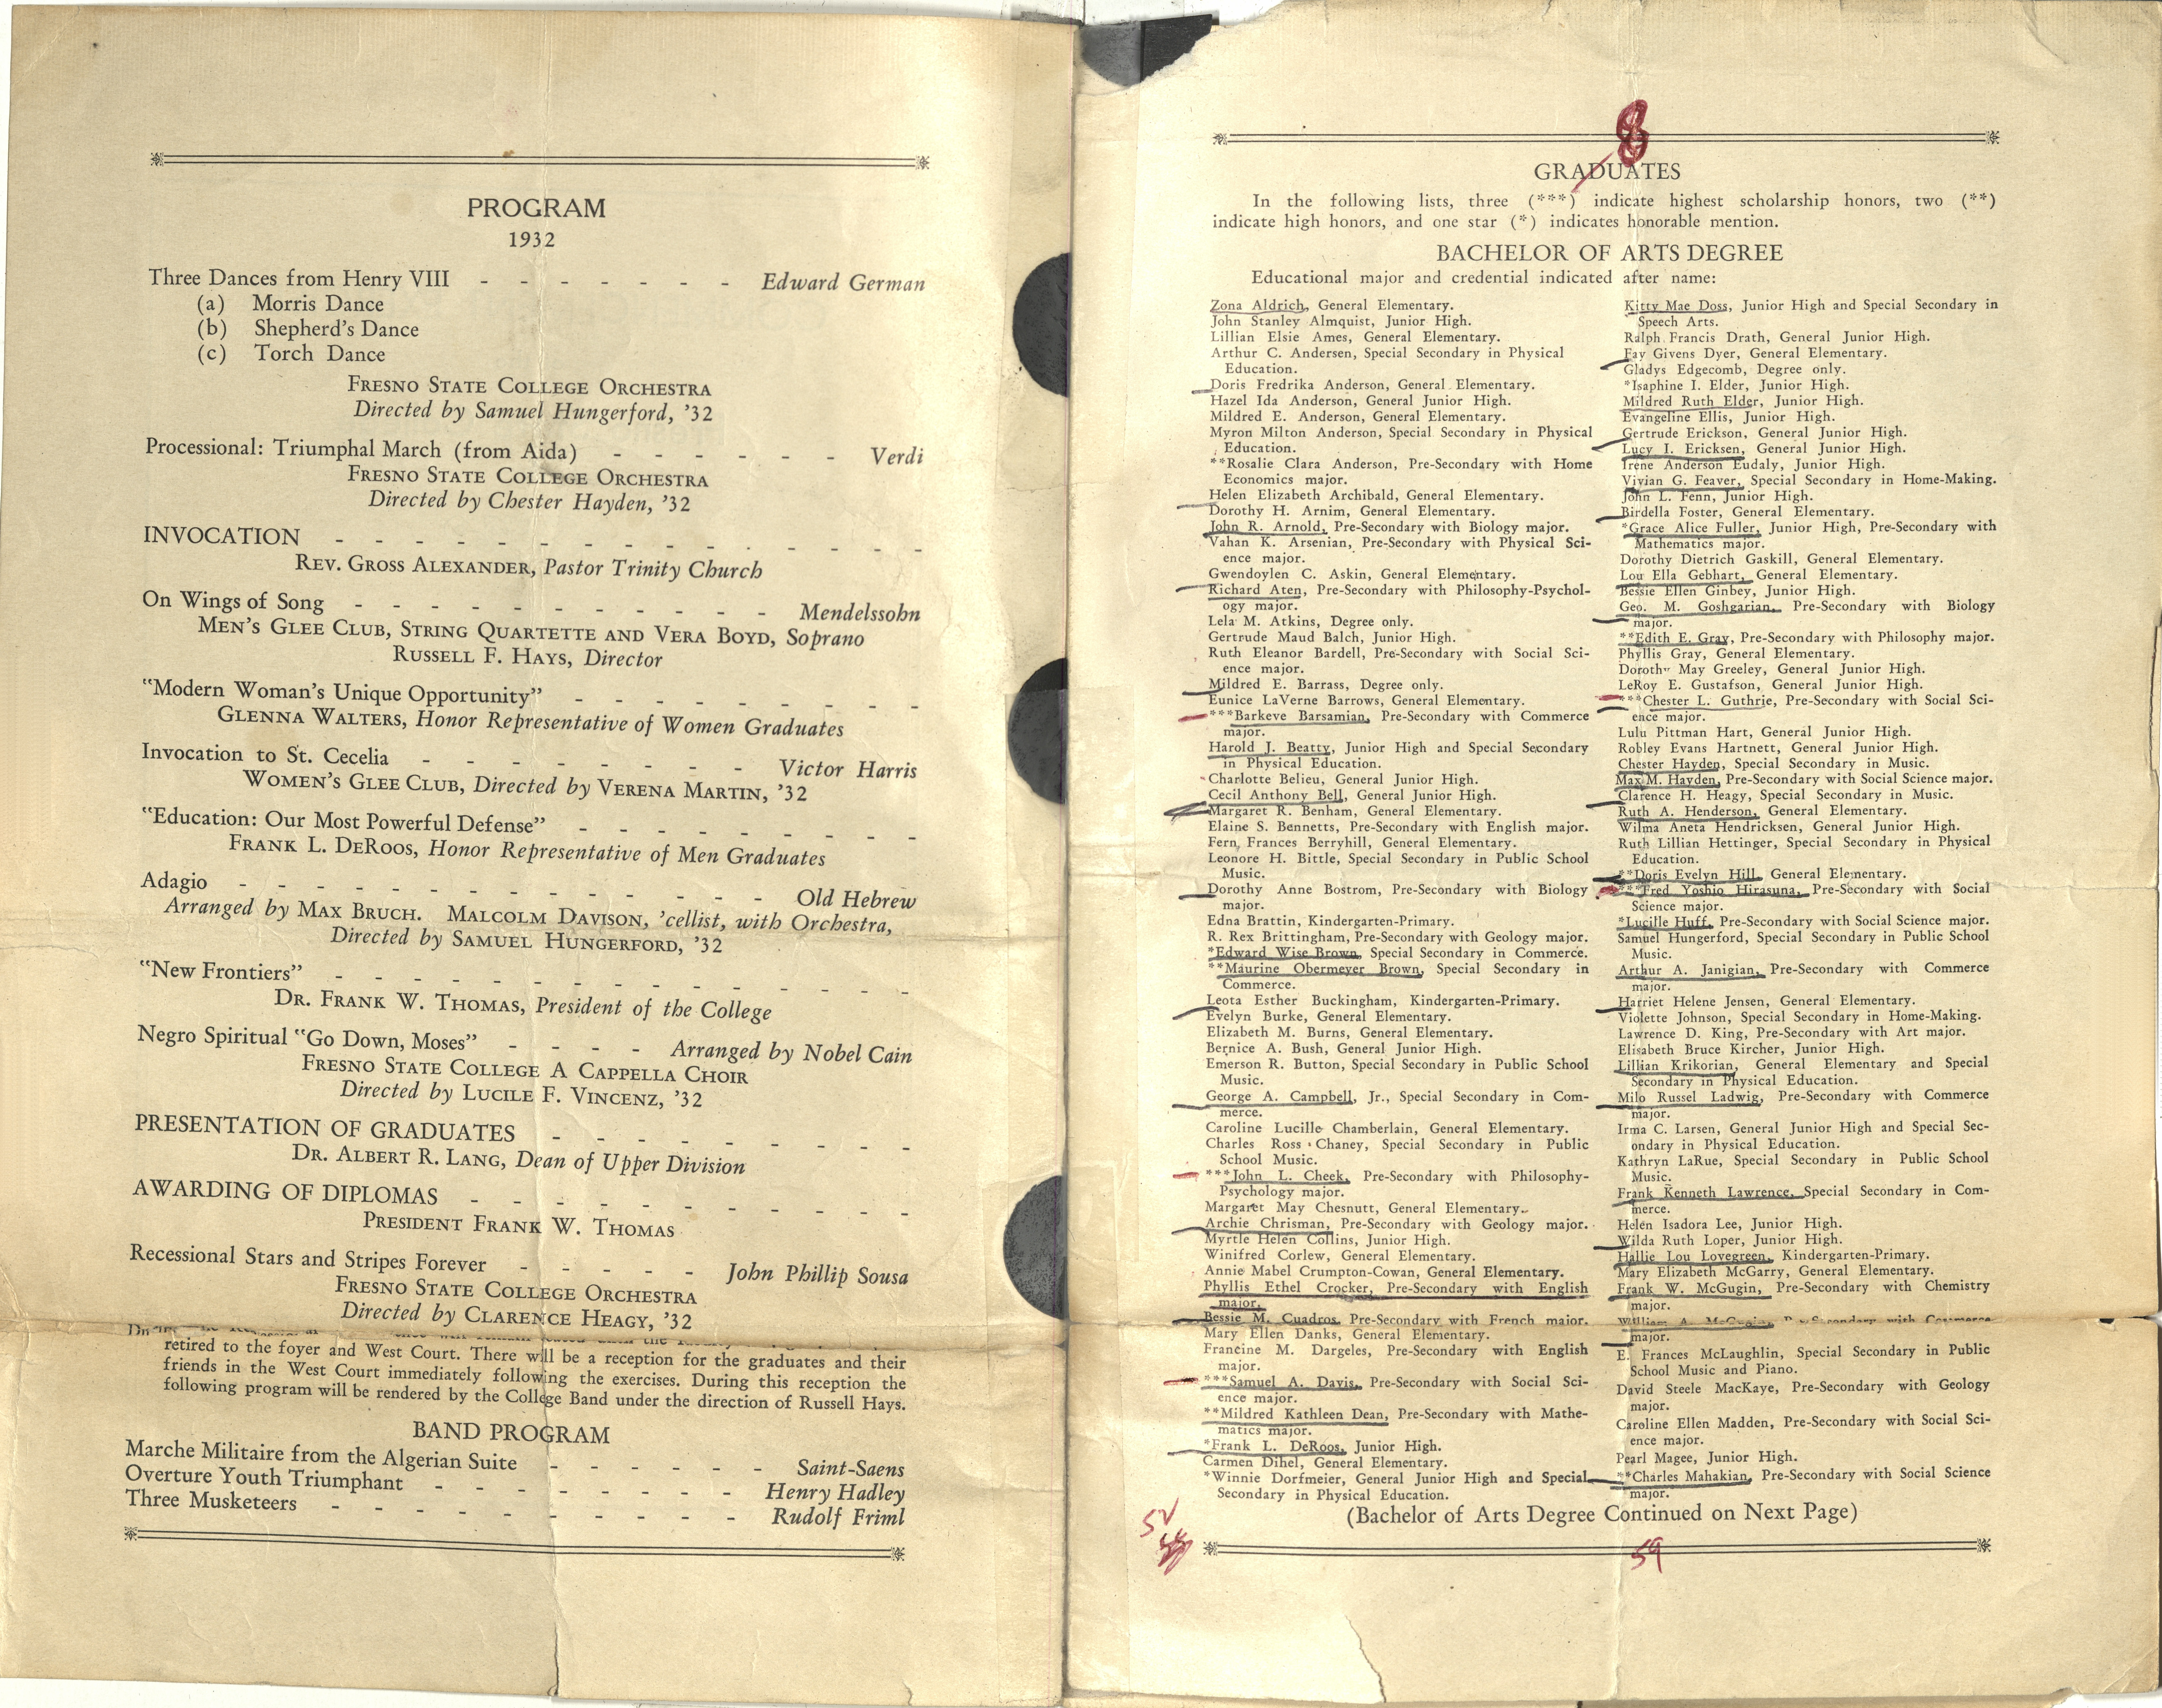 PROGRAM
1932
Three Dances from Henry VIII - - - - - - - Edward German
(a) Morris Dance
(b) Shepherd's Dance
(c) Torch Dance
FRESNO STATE COLLEGE ORCHESTRA
Directed by Samuel Hungerford, '32
Processional: Triumphal March (from Aida) - - - - - - Verdi
FRESNO STATE COLLEGE ORCHESTRA
Directed by Chester Hayden, '32
INVOCATION - - - - - - - - - - - - - -
REV. GROSS ALEXANDER, Pastor Trinity Church
On Wings of Song - - - - - - - - - - - Mendelssohn
MEN'S GLEE CLUB, STRING QUARTETTE AND VERA BOYD, Soprano
RUSSELL F. HAYS, Director
"Modern Woman's Unique Opportunity" - - - - - - - -
GLENNA WALTERS, Honor Representative of Women Graduates
Invocation to St. Cecelia - - - - - - - - Victor Harris
WOMEN'S GLEE CLUB, Directed by VERENA MARTIN, '32
"Education: Our Most Powerful Defense" - - - - - - - -
FRANK L. DEROOS, Honor Representative of Men Graduates
Adagio - - - - - - - - - - - - - - Old Hebrew
Arranged by MAX BRUCH. MALCOLM DAVISON, 'cellist, with Orchestra,
Directed by SAMUEL HUNGERFORD, '32
"New Frontiers" - - - - - - - - - - - - -
DR. FRANK W. THOMAS, President of the College
Negro Spiritual "Go Down, Moses" - - - - Arranged by Nobel Cain
FRESNO STATE COLLEGE A CAPPELLA CHOIR
Directed by LUCILE F. VINCENZ, '32
PRESENTATION OF GRADUATES - - - - - - - - -
DR. ALBERT R. LANG, Dean of Upper Division
AWARDING OF DIPLOMAS - - - - - - - - - - -
PRESIDENT FRANK W. THOMAS
Recessional Stars and Stripes Forever - - - - - John Phillip Sousa
FRESNO STATE COLLEGE ORCHESTRA
Directed by CLARENCE HEAGY, '32
retired to the foyer and West Court. There will be a reception for the graduates and their
friends in the West Court immediately following the exercises. During this reception the
following program will be rendered by the College Band under the direction of Russell Hays.
BAND PROGRAM
Marche Militaire from the Algerian Suite - - - - - - Saint-Saens
Overture Youth Triumphant - - - - - - - - Henry Hadley
Three Musketeers - - - - - - - - - - Rudolf Friml
8
GRADUATES
In the following lists, three (***) indicate highest scholarship honors, two (**)
indicate high honors, and one star (*) indicates honorable mention.
BACHELOR OF ARTS DEGREE
Educational major and credential indicated after name:
Zona Aldrich, General Elementary.
John Stanley Almquist, Junior High.
Lillian Elsie Ames, General Elementary.
Arthur C. Andersen, Special Secondary in Physical
Education.
Doris Fredrika Anderson, General Elementary.
Hazel Ida Anderson, General Junior High.
Mildred E. Anderson, General Elementary.
Myron Milton Anderson, Special Secondary in Physical
Education.
**Rosalie Clara Anderson, Pre-Secondary with Home
Economics major.
Helen Elizabeth Archibald, General Elementary.
Dorothy H. Arnim, General Elementary.
John R. Arnold, Pre-Secondary with Biology major.
Vahan K. Arsenian, Pre-Secondary with Physical Sci-
ence major.
Gwendoylen C. Askin, General Elementary.
Richard Aten, Pre-Secondary with Philosophy-Psychol-
ogy major.
Lela M. Atkins, Degree only.
Gertrude Maud Balch, Junior High.
Ruth Eleanor Bardell, Pre-Secondary with Social Sci-
ence major.
Mildred E. Barrass, Degree only.
Eunice LaVerne Barrows, General Elementary.
***Barkeve Barsamian, Pre-Secondary with Commerce
major.
Harold J. Beatty, Junior High and Special Secondary
in Physical Education.
Charlotte Belieu, General Junior High.
Cecil Anthony Bell, General Junior High.
Margaret R. Benham, General Elementary.
Elaine S. Bennetts, Pre-Secondary with English major.
Fern Frances Berryhill, General Elementary.
Leonore H. Bittle, Special Secondary in Public School
Music.
Dorothy Anne Bostrom, Pre-Secondary with Biology
major.
Edna Brattin, Kindergarten-Primary.
R. Rex Brittingham, Pre-Secondary with Geology major.
*Edward Wise Brown, Special Secondary in Commerce.
**Maurine Obermeyer Brown, Special Secondary in
Commerce.
Leota Esther Buckingham, Kindergarten-Primary.
Evelyn Burke, General Elementary.
Elizabeth M. Burns, General Elementary.
Bernice A. Bush, General Junior High.
Emerson R. Button, Special Secondary in Public School
Music.
George A. Campbell, Jr., Special Secondary in Com-
merce.
Caroline Lucille Chamberlain, General Elementary.
Charles Ross Chaney, Special Secondary in Public
School Music.
***John L. Cheek, Pre-Secondary with Philosophy-
Psychology major.
Margaret May Chesnutt, General Elementary.
Archie Chrisman, Pre-Secondary with Geology major.
Myrtle Helen Collins, Junior High.
Winifred Corlew, General Elementary.
Annie Mabel Crumpton-Cowan, General Elementary.
Phyllis Ethel Crocker, Pre-Secondary with English
major.
Bessie M. Cuadros, Pre-Secondary with French major.
Mary Ellen Danks, General Elementary.
Francine M. Dargeles, Pre-Secondary with English
major.
***Samuel A. Davis, Pre-Secondary with Social Sci-
ence major.
**Mildred Kathleen Dean, Pre-Secondary with Mathe-
matics major.
*Frank L. DeRoos, Junior High.
Carmen Dihel, General Elementary.
*Winnie Dorfmeier, General Junior High and Special
Secondary in Physical Education.
Kitty Mae Doss, Junior High and Special Secondary in
Speech Arts.
Ralph Francis Drath, General Junior High.
Fay Givens Dyer, General Elementary.
Gladys Edgecomb, Degree only.
*Isaphine I. Elder, Junior High.
Mildred Ruth Elder, Junior High.
Evangeline Ellis, Junior High.
Gertrude Erickson, General Junior High.
Lucy I. Ericksen, General Junior High.
Irene Anderson Eudaly, Junior High.
Vivian G. Feaver, Special Secondary in Home-Making.
John L. Fenn, Junior High.
Birdella Foster, General Elementary.
*Grace Alice Fuller, Junior High, Pre-Secondary with
Mathematics major.
Dorothy Dietrich Gaskill, General Elementary.
Lou Ella Gebhart, General Elementary.
Bessie Ellen Ginbey, Junior High.
Geo. M. Goshgarian, Pre-Secondary with Biology
major.
**Edith E. Gray, Pre-Secondary with Philosophy major.
Phyllis Gray, General Elementary.
Dorothy May Greeley, General Junior High.
LeRoy E. Gustafson, General Junior High.
***Chester L. Guthrie, Pre-Secondary with Social Sci-
ence major.
Lulu Pittman Hart, General Junior High.
Robley Evans Hartnett, General Junior High.
Chester Hayden, Special Secondary in Music.
Max M. Hayden, Pre-Secondary with Social Science major.
Clarence H. Heagy, Special Secondary in Music.
Ruth A. Henderson, General Elementary.
Wilma Aneta Hendricksen, General Junior High.
Ruth Lillian Hettinger, Special Secondary in Physical
Education.
**Doris Evelyn Hill, General Elementary.
***Fred Yoshio Hirasuna, Pre-Secondary with Social
Science major.
*Lucille Huff, Pre-Secondary with Social Science major.
Samuel Hungerford, Special Secondary in Public School
Music.
Arthur A. Janigian, Pre-Secondary with Commerce
major.
Harriet Helene Jensen, General Elementary.
Violette Johnson, Special Secondary in Home-Making.
Lawrence D. King, Pre-Secondary with Art major.
Elisabeth Bruce Kircher, Junior High.
Lillian Krikorian, General Elementary and Special
Secondary in Physical Education.
Milo Russel Ladwig, Pre-Secondary with Commerce
major.
Irma C. Larsen, General Junior High and Special Sec-
ondary in Physical Education.
Kathryn LaRue, Special Secondary in Public School
Music.
Frank Kenneth Lawrence, Special Secondary in Com-
merce.
Helen Isadora Lee, Junior High.
Wilda Ruth Loper, Junior High.
Hallie Lou Lovegreen, Kindergarten-Primary.
Mary Elizabeth McGarry, General Elementary.
Frank W. McGugin, Pre-Secondary with Chemistry
major.
William A. McGugin, Pre-Secondary with Commerce
major.
E. Frances McLaughlin, Special Secondary in Public
School Music and Piano.
David Steele MacKaye, Pre-Secondary with Geology
major.
Caroline Ellen Madden, Pre-Secondary with Social Sci-
ence major.
Pearl Magee, Junior High.
**Charles Mahakian, Pre-Secondary with Social Science
major.
(Bachelor of Arts Degree Continued on Next Page)
52
59